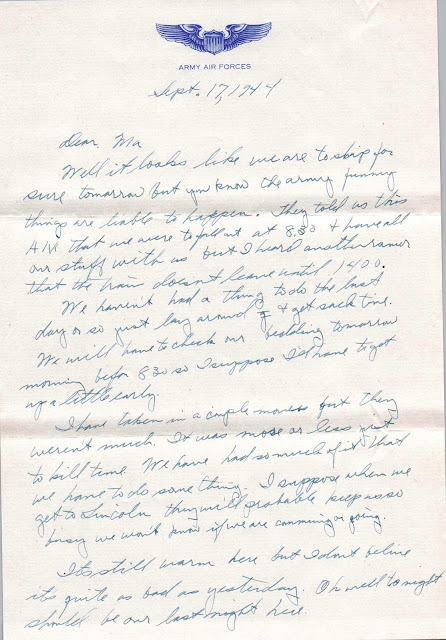 ARMY AIR FORCES
Sept. 17, 1944
Dear Ma
Well it looks like we are to ship for
sure tomorrow but you know the army funny
things are liable to happen. They told us this
A.M. that we were to fall out at 830 & have all
our stuff with us but I heard another rumor
that the train doesn't leave until 1400.
We haven't had a thing to do the last
day or so just lay around & get sack time.
We will have to check our bedding tomorrow
morning befor 830 so I suppose I'll have to get
up a little early.
I have taken in a couple movies but they
weren't much. It was more or less just
to kill time. We have had so much of it that
we have to do something. I suppose when we
get to Lincoln they will probable keep us so
busy we won't know if we are comming or going.
Its still warm here but I dont belive
its quite as bad as yesterday. Oh well tonight
should be our last night here.